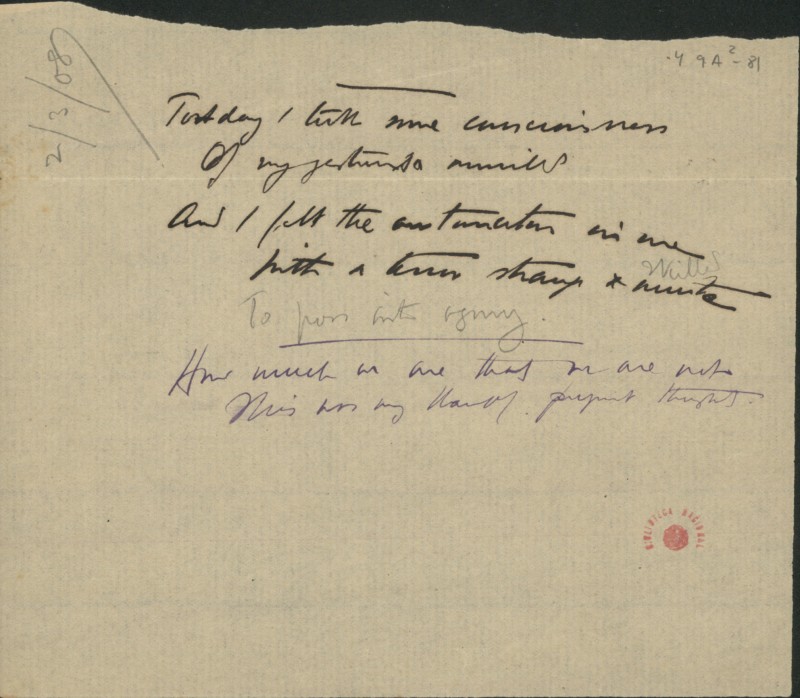 2/3/08
49A²-81
Today I took some consciousness
Of my gestures
And I felt the automaton in me
With a terror strange &
skilled
To pass into agony.
How much we are that we are not
This was my thought.
BIBLIOTECA NACIONAL